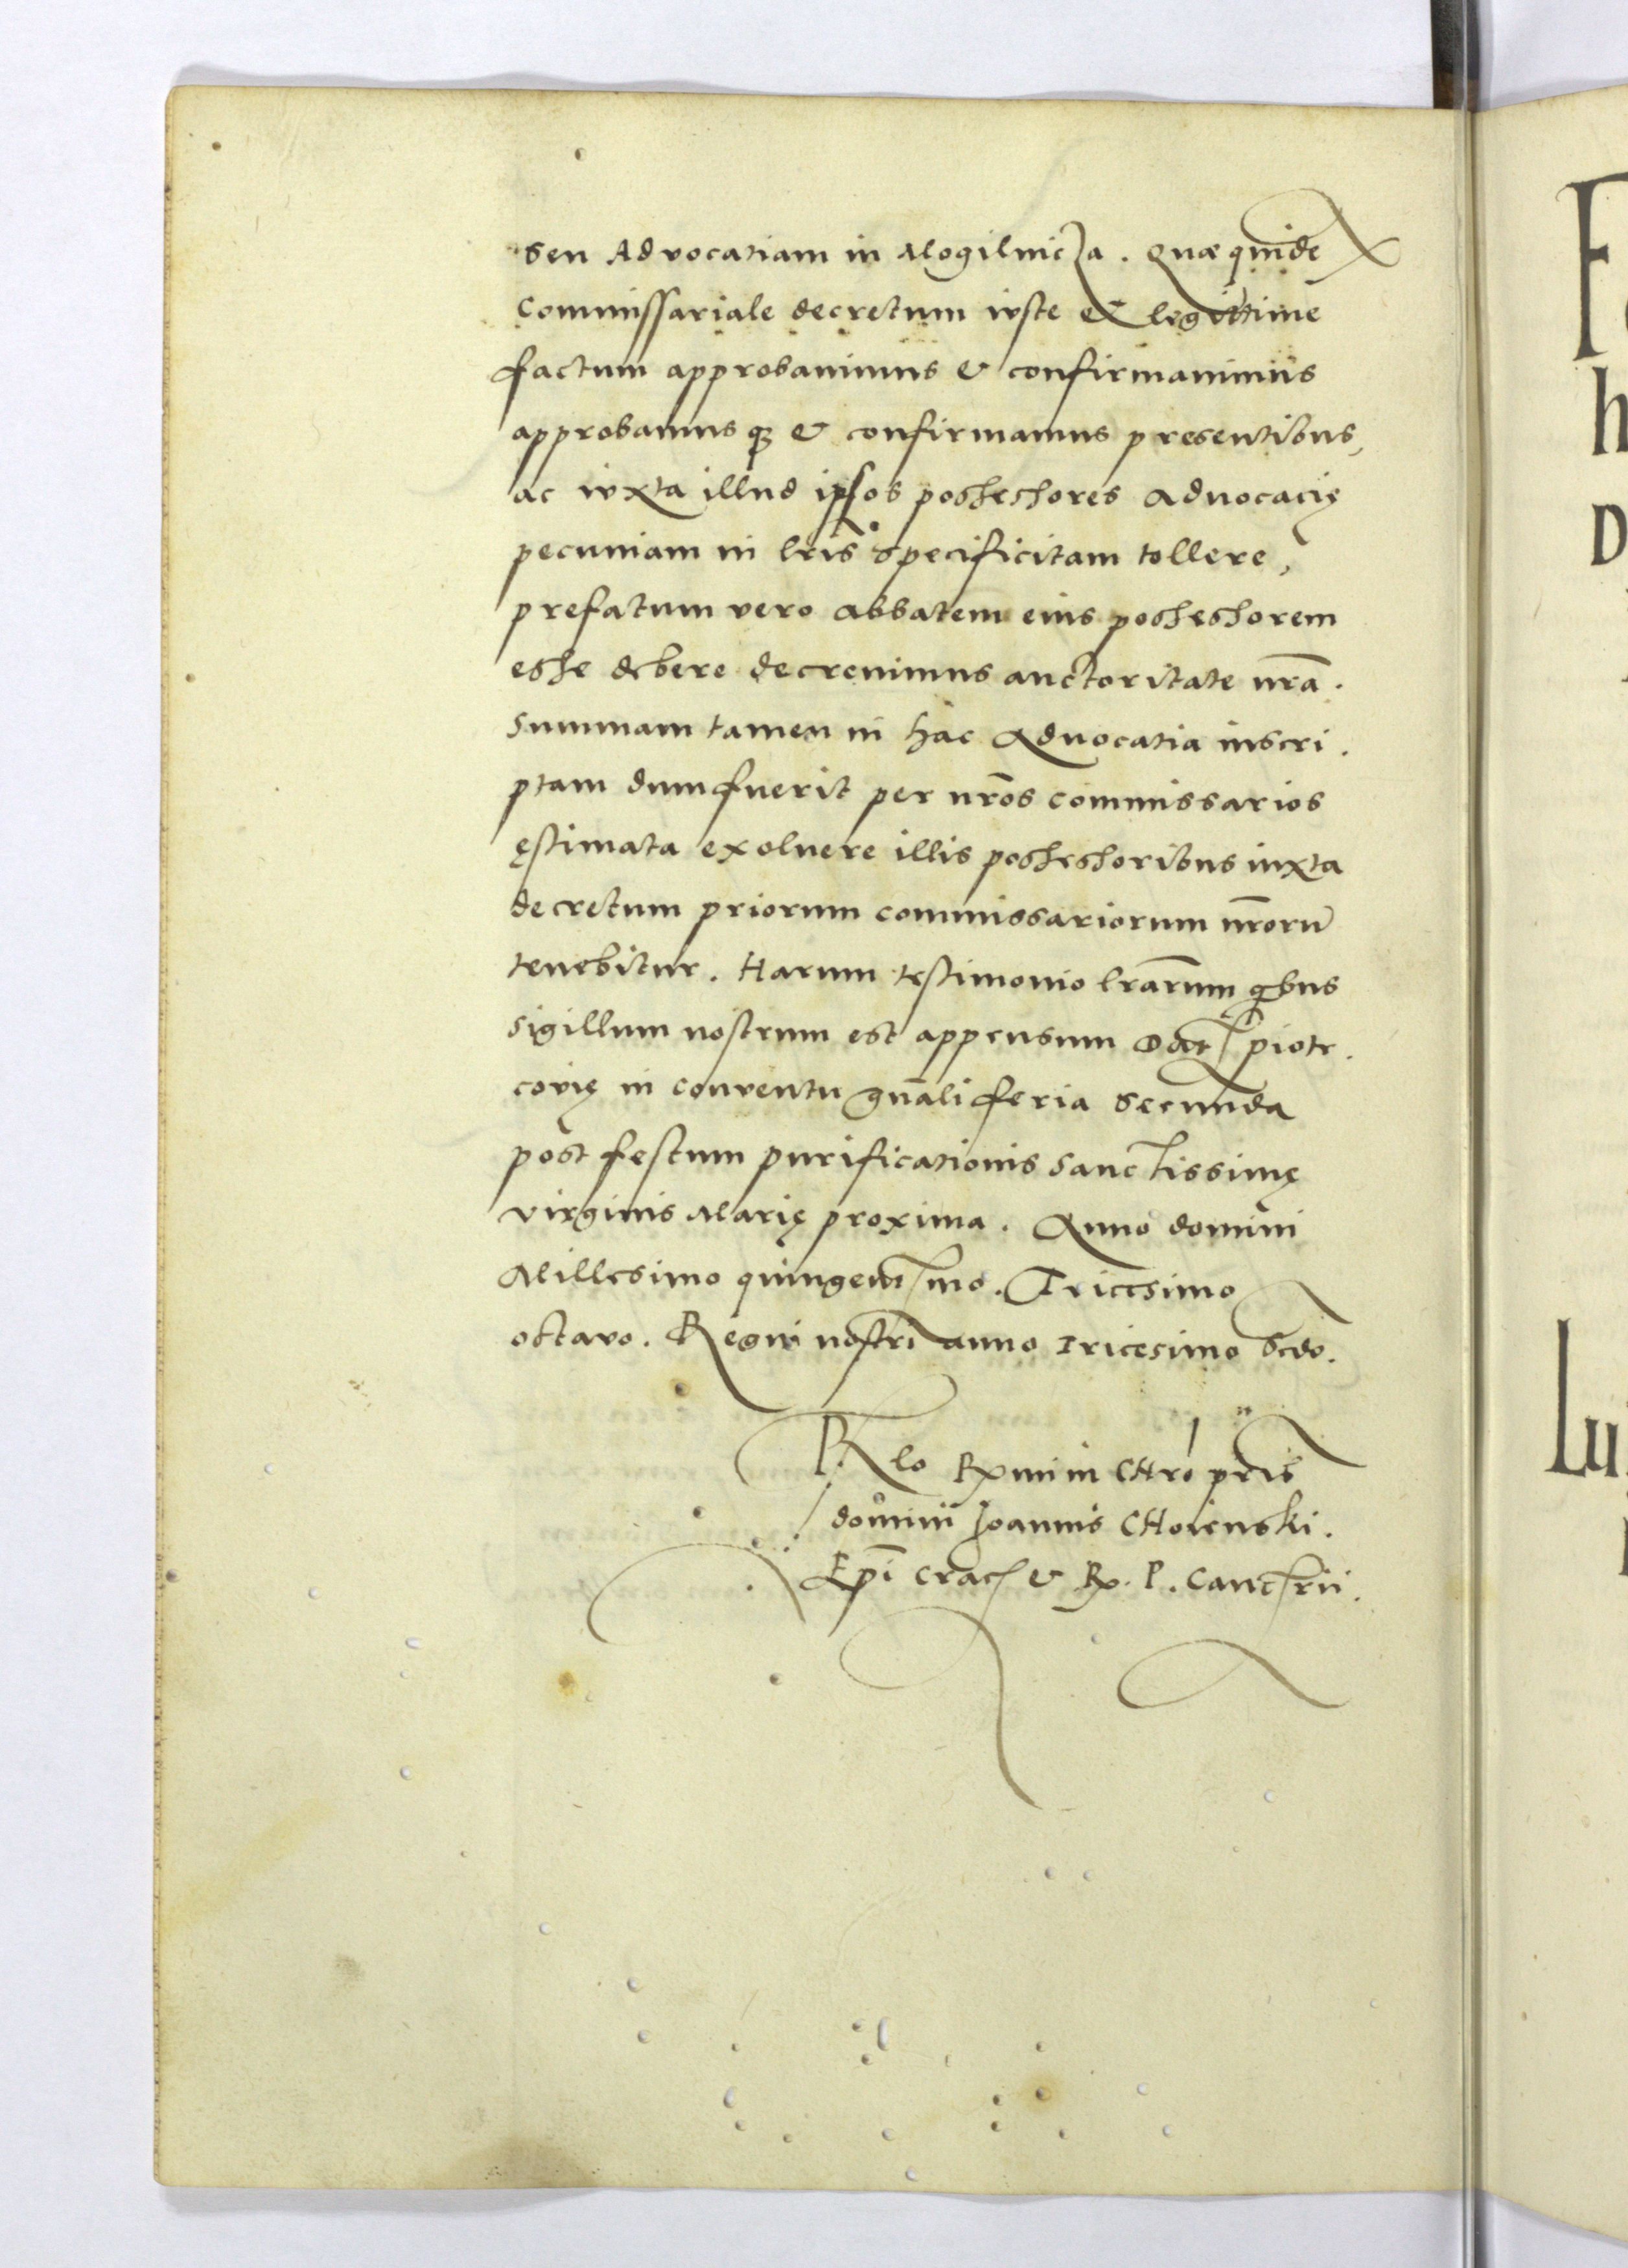 seu Advocatiam in Mogilnicza. Quæ quidē
Commissariale decretum iuste et legittime
factum approbauimus & confirmauimus
approbamus q₃ & confirmamus presentibus,
ac iuxta illud ipsos possessores aduocacię
pecuniam in lr̃is specificitam tollere,
prefatum vero abbatem eius possessorem
esse debere decreuimus auctoritate nr̃a.
Summam tamen in hac Aduocatia inscri.
ptam dum fuerit per nr̃os commissarios
ęstimata exoluere illis possessoribus iuxta
decretum priorum commissariorum nr̃orū
tenebitur. Harum testimonio lr̃arum qbus
sigillum nostrum est appensum Dat piotr.
covię in conventu gnāli feria secunda
post festum purificationis sanctissimę
virginis Marię proxima. Anno domini
Millesimo quingentmo. Tricesimo
octavo. Regni nostri anno tricesimo scdo.
Rlo Rmi in CHro pr̃is
domini Joannis CHoienski.
Ep̄i Crac & R. P. Canctrii.
F
h
D
Lu